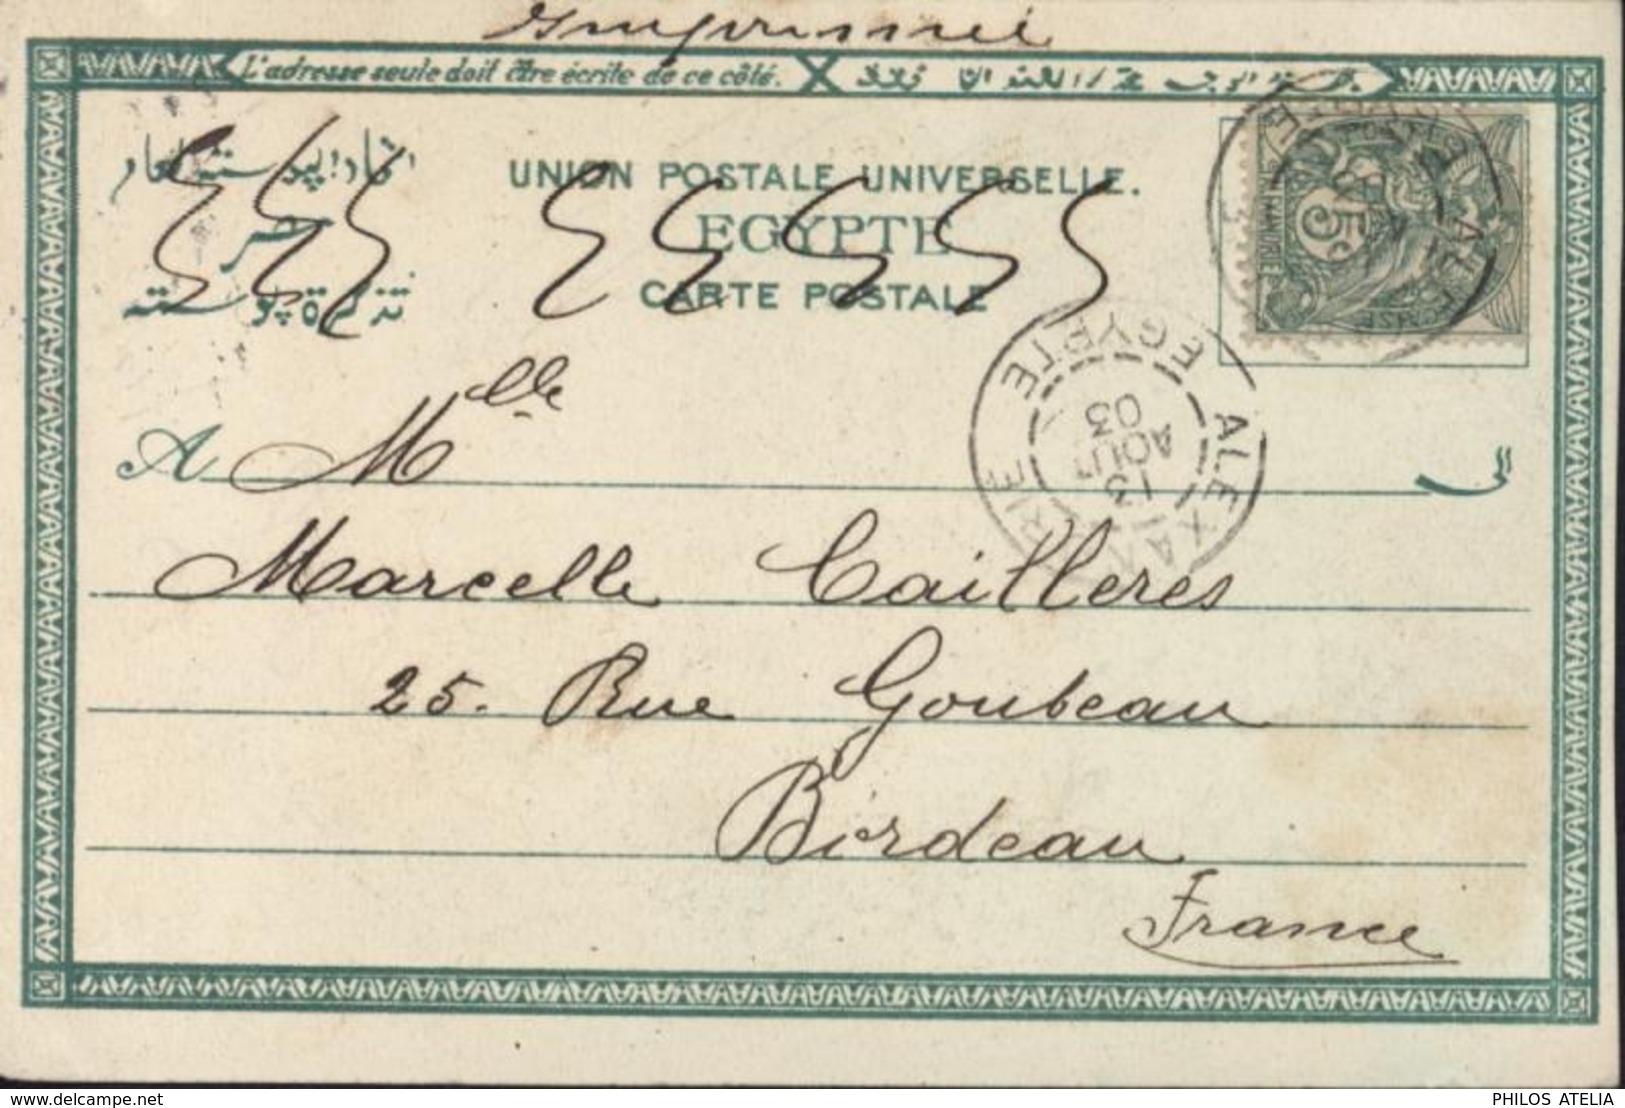 Imprimé
L'adresse seule doit être écrite de ce côté.
اتحاد البوسته العام
مصر
تذكرة بوسته
UNION POSTALE UNIVERSELLE.
EGYPTE
CARTE POSTALE
5
ALEXANDRIE
EGYPTE
13
AOUT
03
A Mlle
الى
Marcelle Cailleres
25. Rue Goubeau
Bordeau
France
www.delcampe.net
PHILOS ATELIA